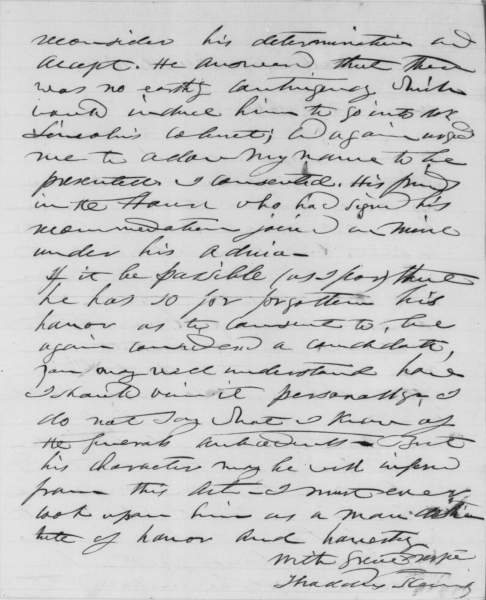 reconsider his determination and
accept. He answered that there
was no earthly contingency which
could induce him to go into Mr
Lincoln's cabinet; & again urged
me to allow my name to be
presented. I consented. His friends
in the House who had signed his
recommendation joined in mine
under his advice—
If it be possible (as I fear) that
he has so far forgotten his
honor as to consent to be
again considered a candidate,
you may well understand how
I should view it personally. I
do not say what I know of
the Generals antecedents— But
his character may be well inferred
from this act— I must ever
look upon him as a man
of honor and honesty
With great respect
Thaddeus Stevens